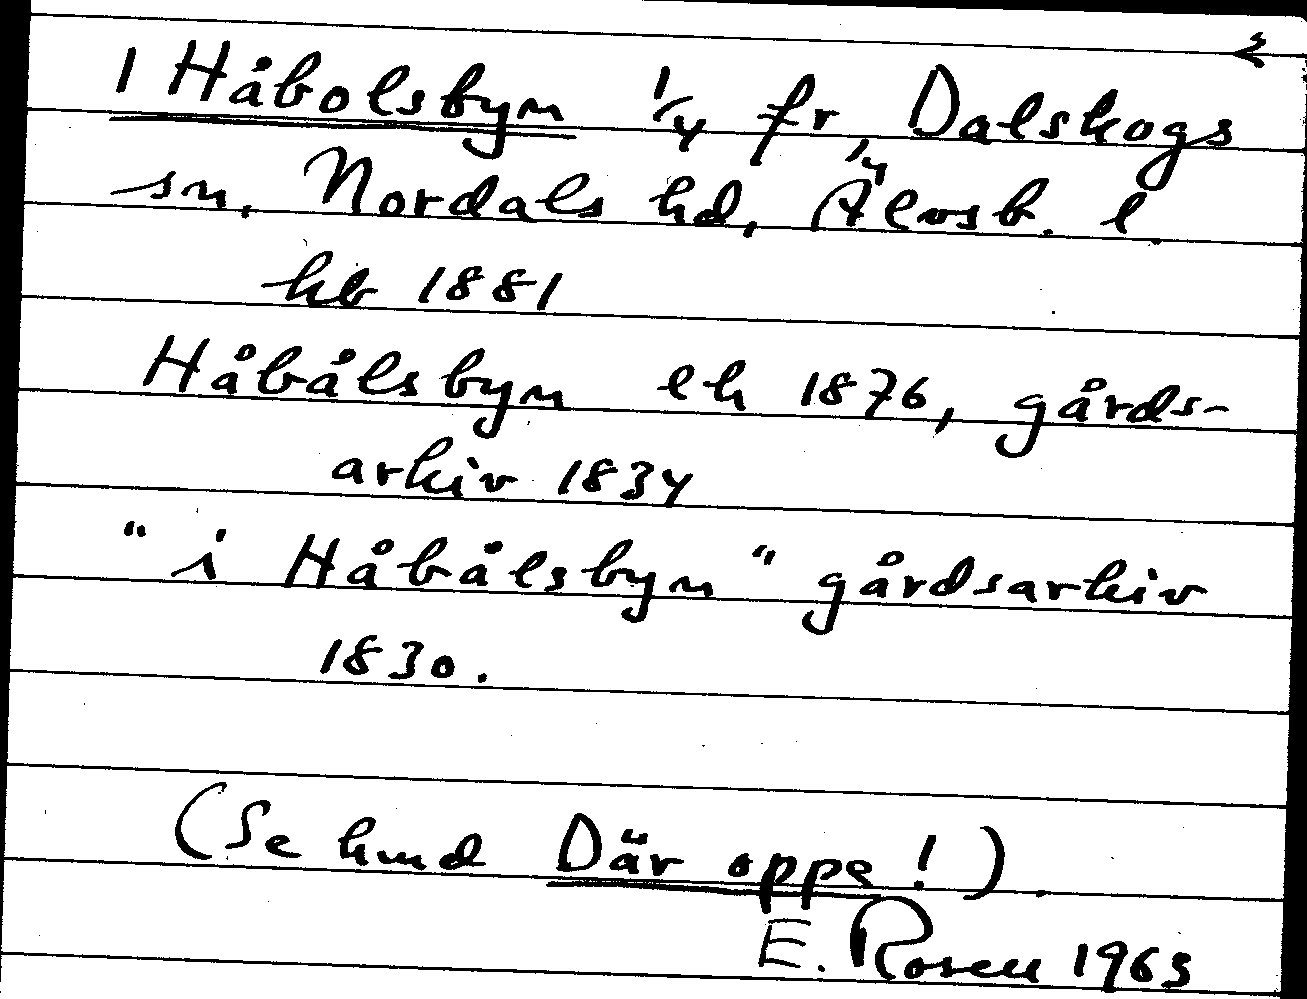 1 Håbolsbyn 1/4 fr, Dalskogs
sn, Nordals hd, Älvsb. l.
kb 1881
Håbålsbyn ek 1876, gårds-
arkiv 1834
"i Håbålsbyn" gårdsarkiv
1830.
(Se hmd Där oppe!).
E. Rosen 1963